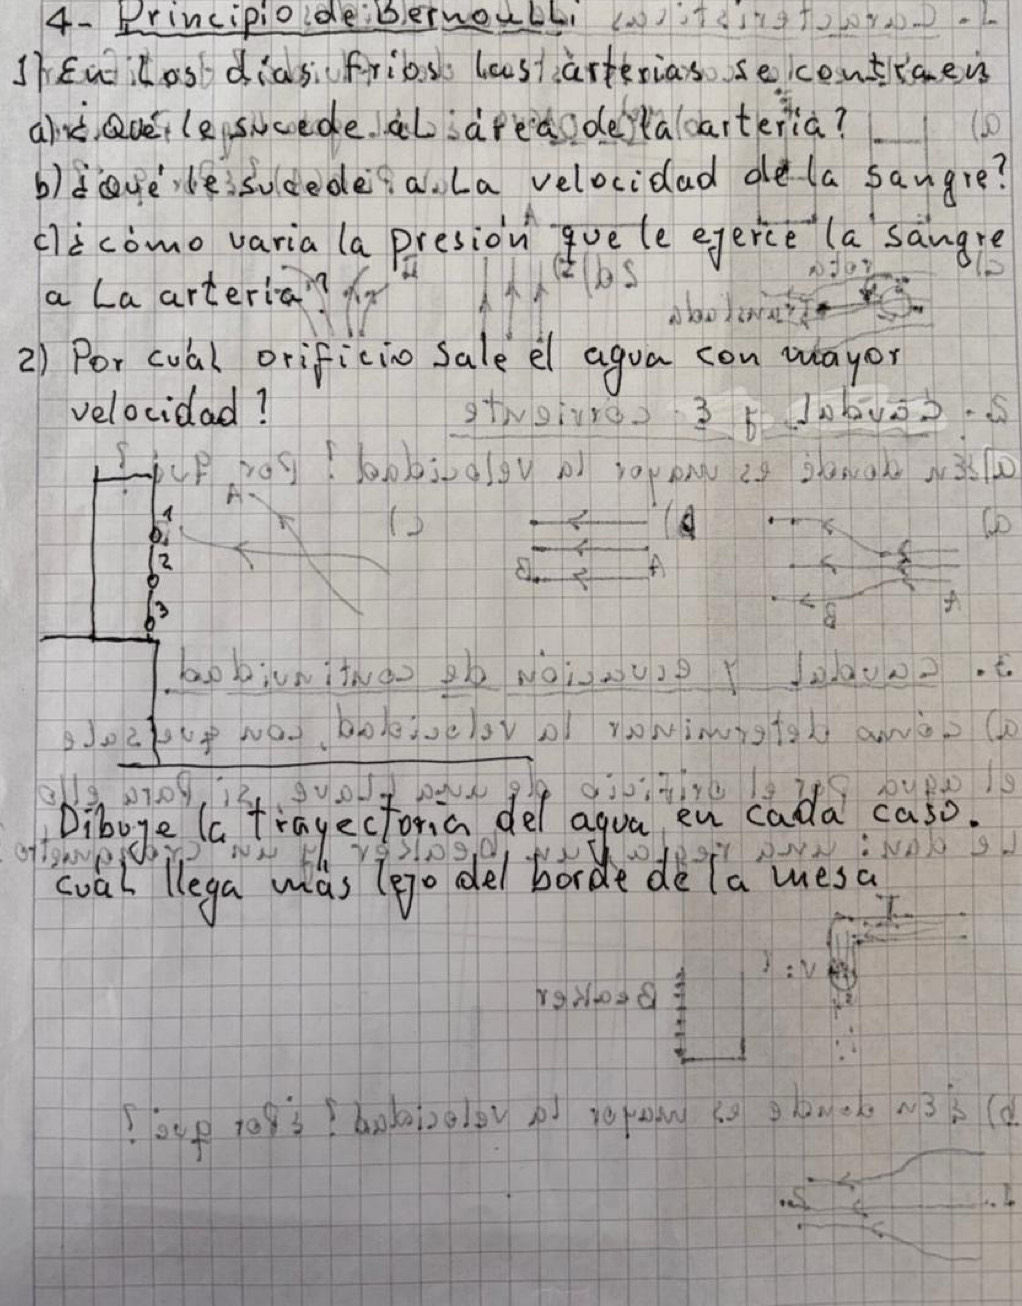 4- Principio de Bernoulli
1) En los días fríos las arterias se contraen
a) ¿Qué le sucede al área de la arteria?
b) ¿Qué le sucede a la velocidad de la sangre?
c) ¿cómo varia la presión que le ejerce la sangre
a la arteria?
2) Por cuál orificio sale el agua con mayor
velocidad?
1
2
3
Dibuje la trayectoria del agua en cada caso.
cuál llega más lejo del borde de la mesa